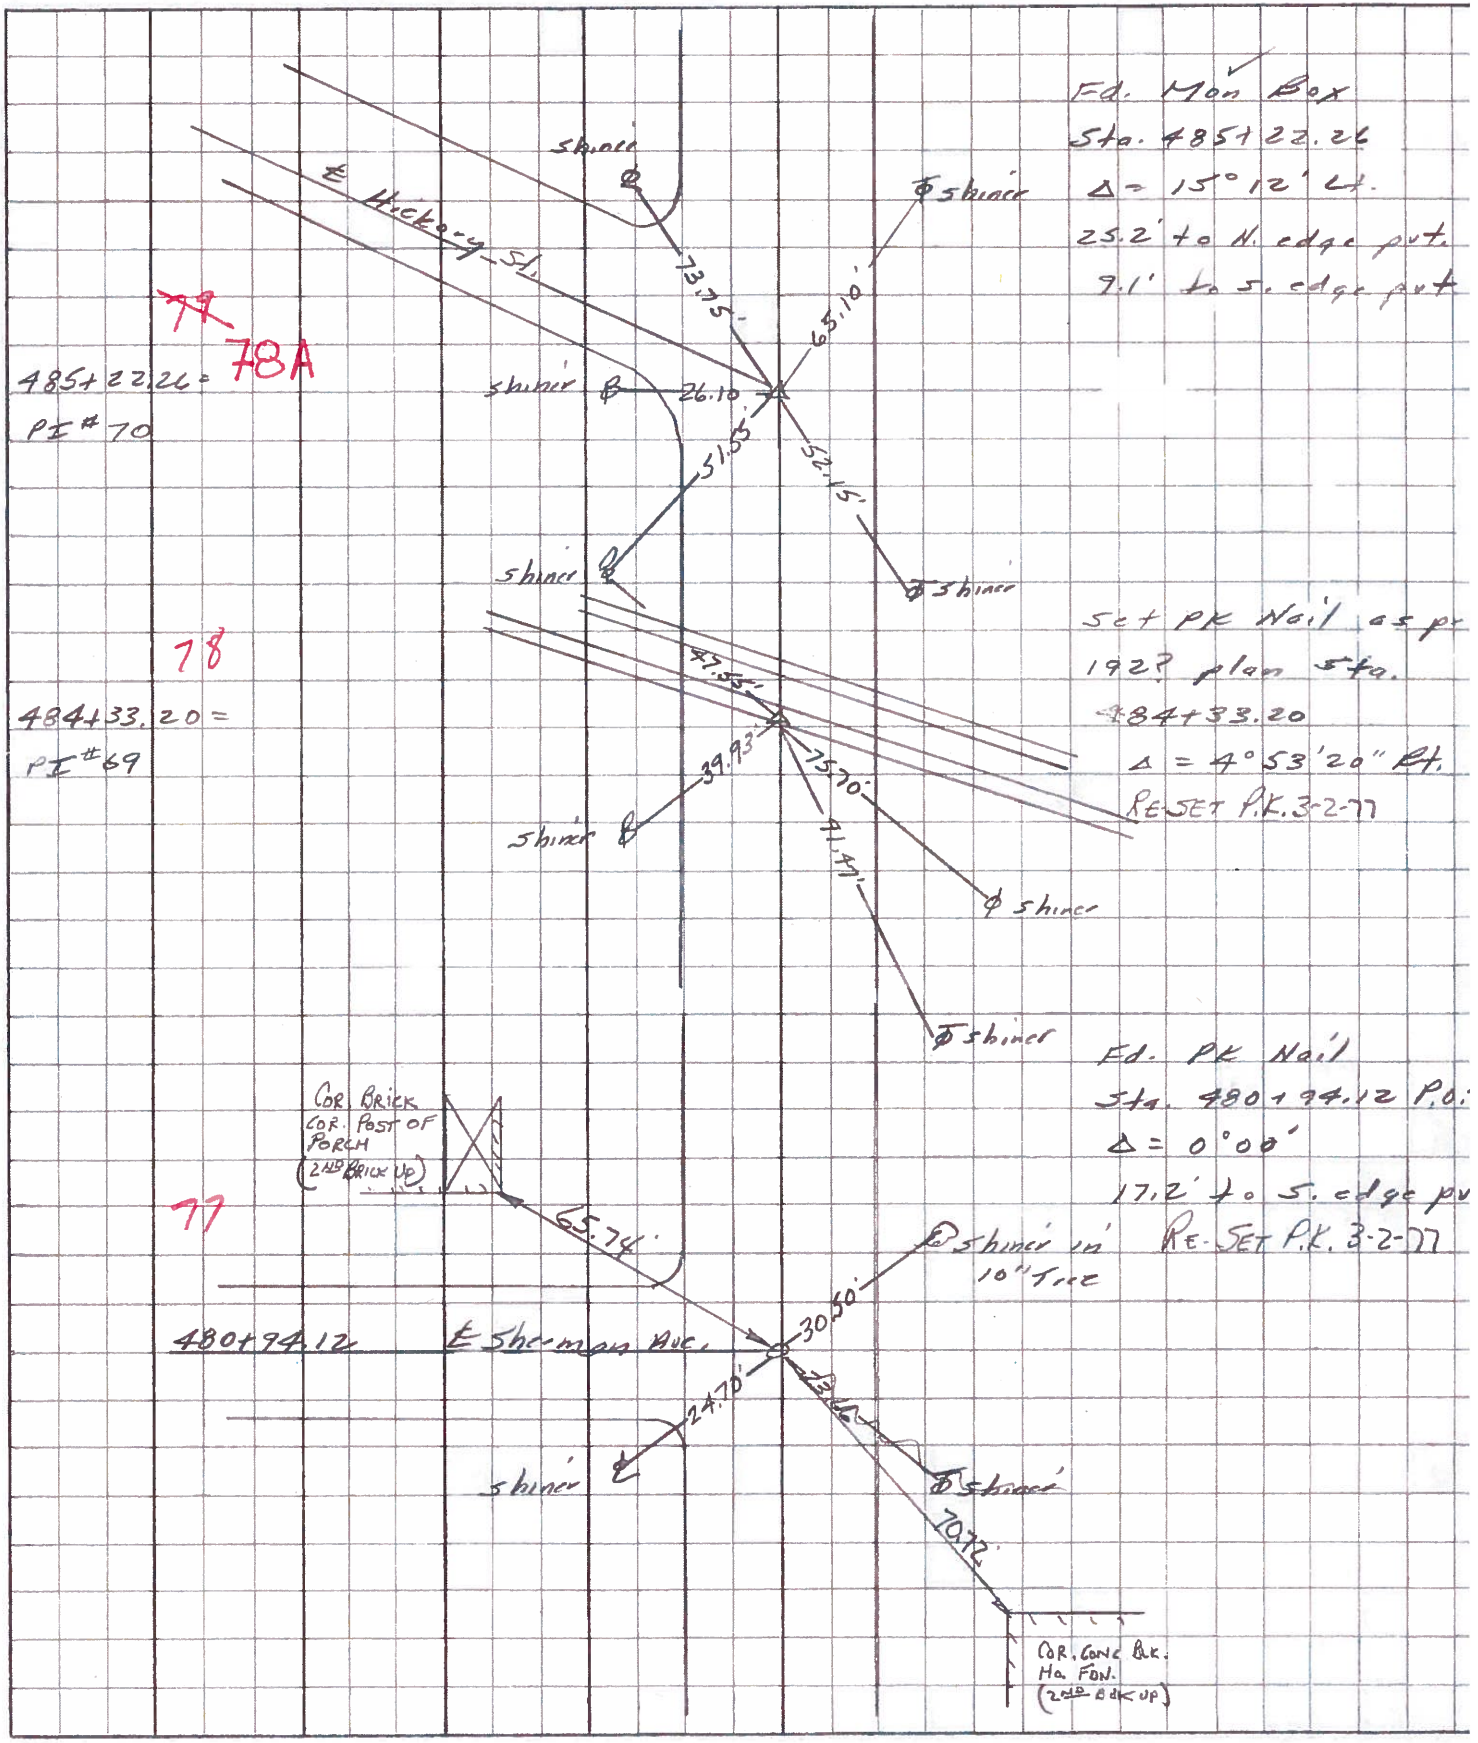 Fd. Mon Box
Sta. 485+22.26
Δ = 15° 12' Lt.
25.2' to N. edge pvt.
9.1' to S. edge pvt
shiner
shiner
℄ Hickory St.
73.75'
65.10'
79
78A
485+22.26 =
PI # 70
shiner
26.10
51.55'
52.15'
shiner
shiner
Set PK Nail as p
192? plan Sta.
484+33.20
Δ = 4° 53' 20" Rt.
RE-SET P.K. 3-2-77
78
484+33.20 =
PI # 69
47.55'
39.93'
75.70'
41.47'
shiner
shiner
shiner
Fd. PK Nail
Sta. 480+94.12 P.O.
Δ = 0° 00'
17.2' to S. edge pv
RE-SET P.K. 3-2-77
COR. BRICK
COR. POST OF
PORCH
(2ND BRICK UP)
77
65.74'
shiner in
10" Tree
30.50'
480+94.12 ℄ Sherman Ave.
24.70'
shiner
shiner
70.72'
COR. CONC BLK.
HO. FDN.
(2ND BLK UP)